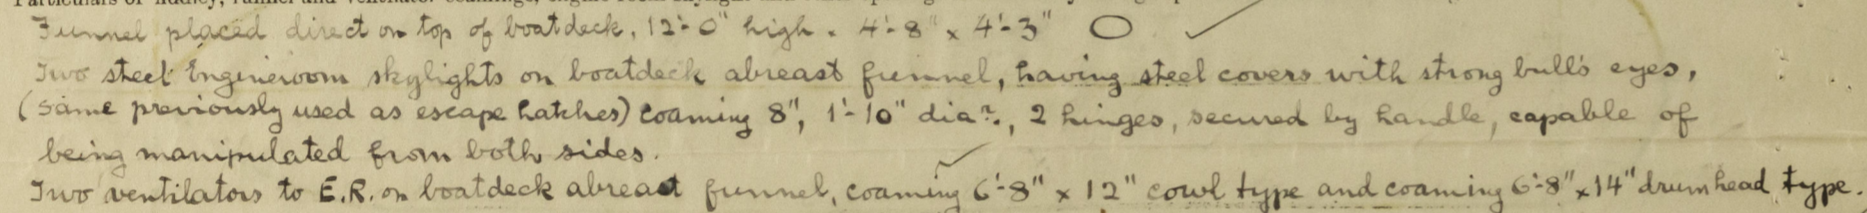 Funnel placed direct on top of boatdeck, 12'-0" high. 4'-8" x 4'-3" O ✓
Two steel Engineroom skylights on boatdeck abreast funnel, having steel covers with strong bull's eyes,
(same previously used as escape hatches) coaming 8", 1'-10" diar., 2 hinges, secured by handle, capable of
being manipulated from both sides. ✓
Two ventilators to E.R. on boatdeck abreast funnel, coaming 6'-8" x 12" cowl type and coaming 6'-8" x 14" drumhead type.